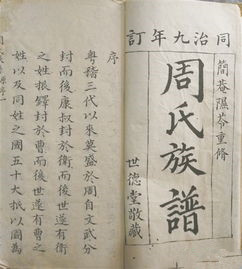 同治九年訂
簡菴隰苓重脩
周氏族譜
世德堂敬藏
序
粤稽三代以來莫盛於周自文武分
封而後康叔封於衛而後世遂有衛
之姓振鐸封於曹而後世遂有曹之
姓以及同姓之國五十大抵以國為